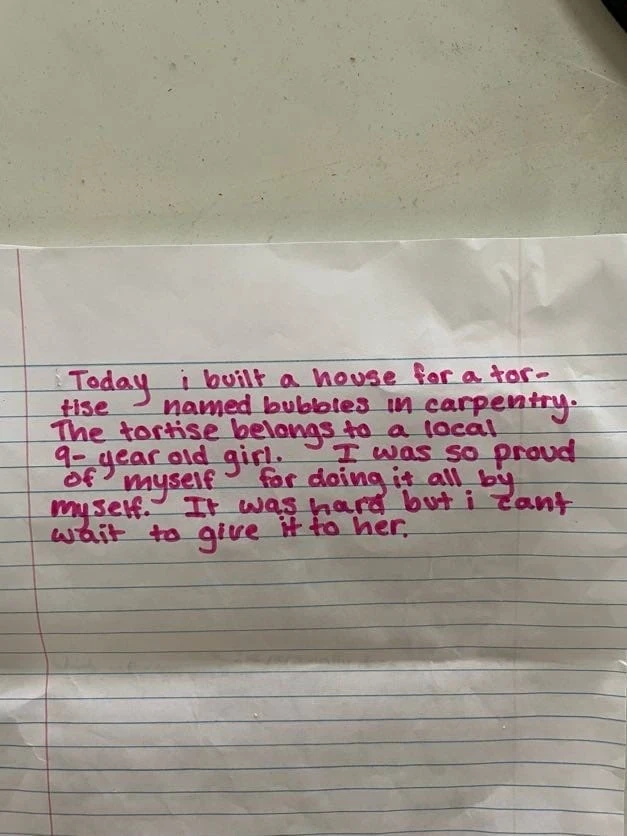 Today i built a house for a tor-
tise named bubbles in carpentry.
The tortise belongs to a local
9-year old girl. I was so proud
of myself for doing it all by
myself. It was hard but i cant
wait to give it to her.